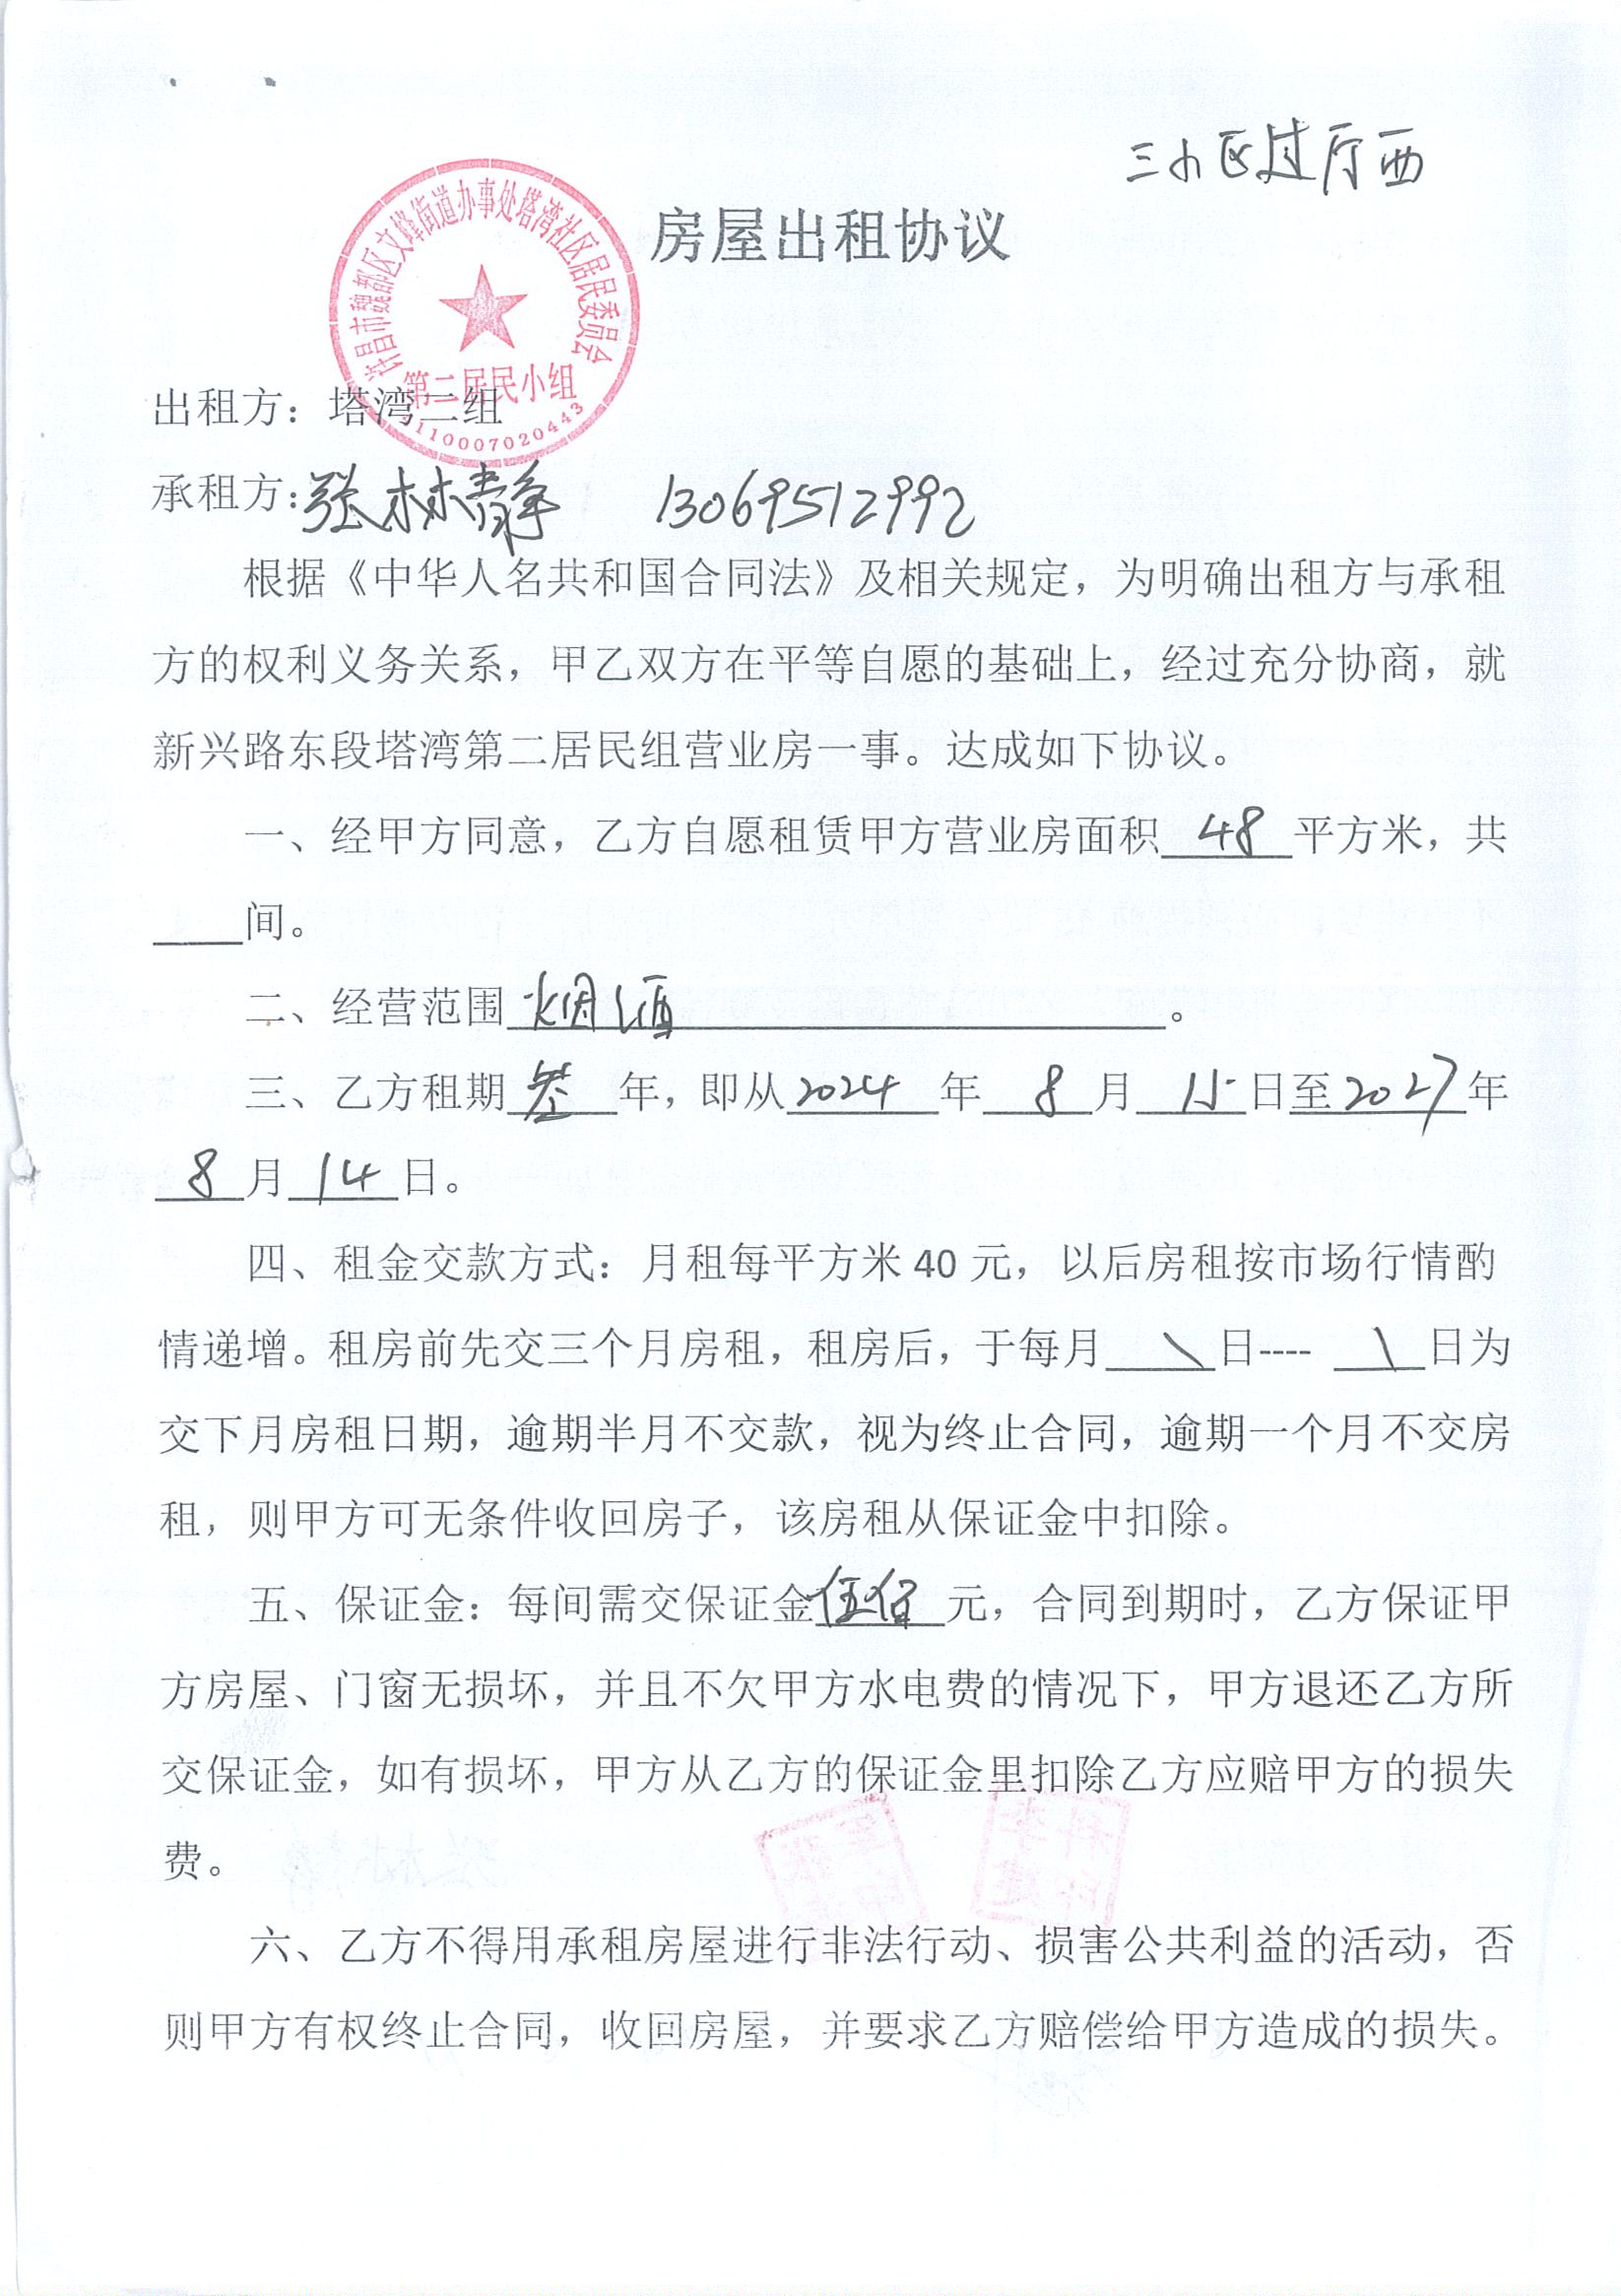 三小区过厅西
房屋出租协议
许昌市魏都区文峰街道办事处塔湾社区居民委员会
第二居民小组
4110007020443
出租方：塔湾二组
承租方：张林静 13069512992
根据《中华人名共和国合同法》及相关规定，为明确出租方与承租
方的权利义务关系，甲乙双方在平等自愿的基础上，经过充分协商，就
新兴路东段塔湾第二居民组营业房一事。达成如下协议。
一、经甲方同意，乙方自愿租赁甲方营业房面积 48 平方米，共
____间。
二、经营范围 烟酒 。
三、乙方租期 叁 年，即从 2024 年 8 月 15 日至 2027 年
8 月 14 日。
四、租金交款方式：月租每平方米 40 元，以后房租按市场行情酌
情递增。租房前先交三个月房租，租房后，于每月 \ 日---- \ 日为
交下月房租日期，逾期半月不交款，视为终止合同，逾期一个月不交房
租，则甲方可无条件收回房子，该房租从保证金中扣除。
五、保证金：每间需交保证金 伍佰 元，合同到期时，乙方保证甲
方房屋、门窗无损坏，并且不欠甲方水电费的情况下，甲方退还乙方所
交保证金，如有损坏，甲方从乙方的保证金里扣除乙方应赔甲方的损失
费。
六、乙方不得用承租房屋进行非法行动、损害公共利益的活动，否
则甲方有权终止合同，收回房屋，并要求乙方赔偿给甲方造成的损失。